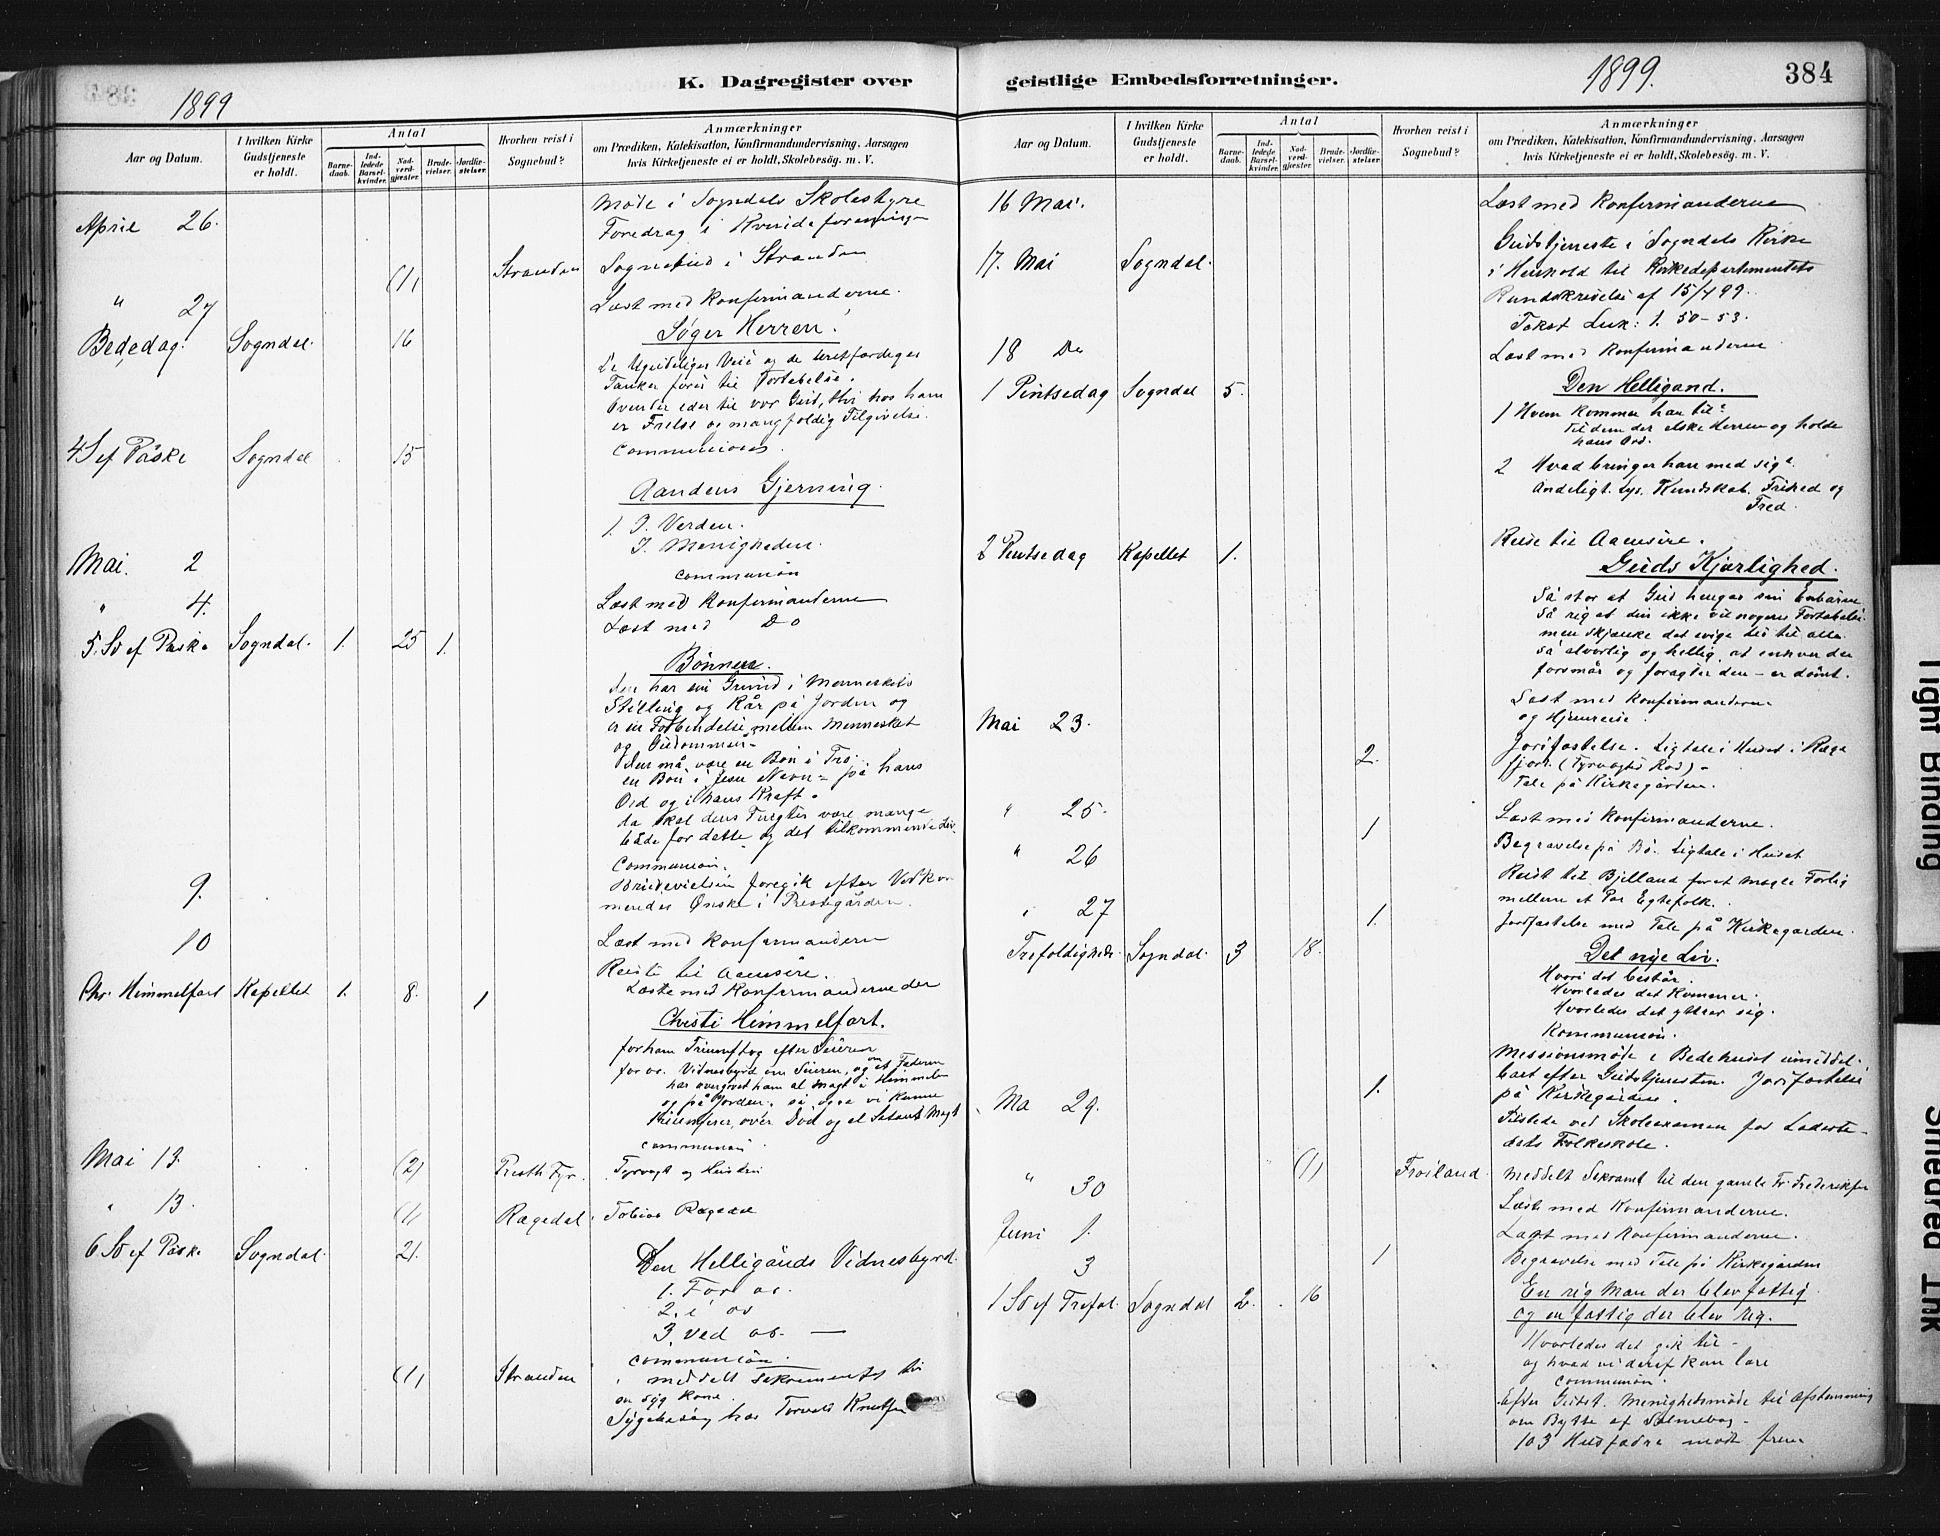 K. Dagregister over
1899
Aar og Datum.
I hvilken Kirke Gudstjeneste er holdt.
Antal
Barnedaab.
Indledede Barselkvinder.
Nadverdgjæster.
Brudevielser.
Jordfæstelser.
Hvorhen reist i Sognebud?
Anmærkninger
om Prædiken, Katekisation, Konfirmandundervisning, Aarsagen
hvis Kirketjeneste ei er holdt, Skolebesøg. m. V.
April 26.
Møde i Sogndals Skolestyre
Foredrag i Kvindeforening
(1) Stranden Sognebud i Stranden
" 27 Læst med Konfirmanderne.
Bededag. Sogndal. 16 Søger Herren!
De Ugudeliges Veie og de uretfærdiges
Tanker fører til Fortabelse.
Ovender eder til vor Gud, thi hos ham
er Frelse og mangfoldig Tilgivelse.
Communion
4 S ef Påske Sogndal 15
Aandens Gjerning.
1. I. Verden.
I. Menigheden.
communion
Mai. 2 Læst med Konfirmanderne
" 4. Læst med Do
5. Sø ef Påske Sogndal. 1. 25 1.
Bønnen.
den har sin Grund i Menneskets
Stilling og Kår på Jorden og
er en Forbindelse mellem Mennesket
og Guddommen
den må være en Bøn i Tro.
en Bøn i Jesu Navn = på hans
Ord og i hans Kraft.
da skal dens Frugter være mange
både for dette og det tilkommende Liv.
Communion.
Brudevielsen foregik efter Vedkom
mendes Ønske i Prestegården.
9. Læst med Konfirmanderne
10 Reiste til Aaensire.
Læste med Konfirmanderne der
Chr. Himmelfart Kapellet 1. 8. 1
Christi Himmelfart.
for ham Triumftog efter Seieren
for os. Vidnesbyrd om Seieren, og om at Faderen
har overgivet ham al Magt i Himmelen
og på Jorden. så også vi kunne
triumfere over Død og al Satans Magt
communion
Mai 13. (2)
Tyrvogt og Hustru
" 13. (1) Rægedal Tobias Rægedal
6 Sø ef Påske Sogndal. 21.
Den Helligånds Vidnesbyrd.
1. For os.
2. i os
3. Ved os. —
communion.
(1) Stranden meddelt sakramentet til
en syg Kone.
Sygebesøg hos Torvald Knutsen
geistlige Embedsforretninger.
1899.
384
Aar og Datum.
I hvilken Kirke Gudstjeneste er holdt.
Antal
Barnedaab.
Indledede Barselkvinder.
Nadverdgjæster.
Brudevielser.
Jordfæstelser.
Hvorhen reist i Sognebud?
Anmærkninger
om Prædiken, Katekisation, Konfirmandundervisning, Aarsagen
hvis Kirketjeneste ei er holdt, Skolebesøg. m. V.
16 Mai. Læst med Konfirmanderne
17. Mai Sogndal. Gudstjeneste i Sogndals Kirke
i Henhold til Kirkedepartementets
Rundskrivelse af 15/4 99.
Tekst Luk: 1. 50-53.
18 Do Læst med Konfirmanderne
1 Pintsedag Sogndal 5. Den Helligand.
1 Hvem kommer han til?
til dem der elske Herren og holde
hans Ord.
2 Hvad bringer han med sig?
Andeligt Lys, Kundskab. Frihed og
Fred.
2 Pintsedag Kapellet 1. Reise til Aaensire.
Guds Kjærlighed.
Så stor at Gud hengav sin Enbårne
Så rig at den ikke vil nogens Fortabelse
men skjænke det evige Liv til alle
Så alvorlig og hellig, at enhver der
forsmår og foragter den - er dømt.
Mai 23. Læst med Konfirmanderne
og Hjemreise.
2. Jordfæstelse. Ligtale i Huset i Rage
fjord. (Tyrvogts Rød) -
Tale på Kirkegården.
" 25. Læst med Konfirmanderne.
1 Begravelse på Bø. Ligtale i Huset
" 26 Reist til Bjelland for at mægle Forlig
mellem et Par Egtefolk.
" 27 1. Jordfæstelse med Tale på Kirkegården.
Trefoldigheds. Sogndal. 3 18. Det nye Liv.
Hvori det består.
Hvorledes det kommer.
Hvorledes det yttrer sig.
Kommunion.
Missionsmøde i Bedehuset umiddel
bart efter Gudstjenesten. Jordfæstelse
1. på Kirkegården.
Ma 29. Tilstede ved Skoleexamen for
dals Folkeskole.
" 30 (1) Frøiland. Meddelt Sakramt til den gamle Fr. Frederiksen
Læste med Konfirmanderne.
Juni 1. Læst med Konfirmanderne.
3 1 Begravelse med Tale på Kirkegården
1 Sø ef Trefol. Sogndal 2. 16 En rig Man der blev fattig
og en fattig der blev rig.
Hvorledes det gik til -
og hvad vi deraf kan lære
communion.
Efter Gudst. Menighedsmøde til Afstemning
om Bytte af Salmebog -
103 Husfædre mødt frem
Tight Binding
Smeared Ink